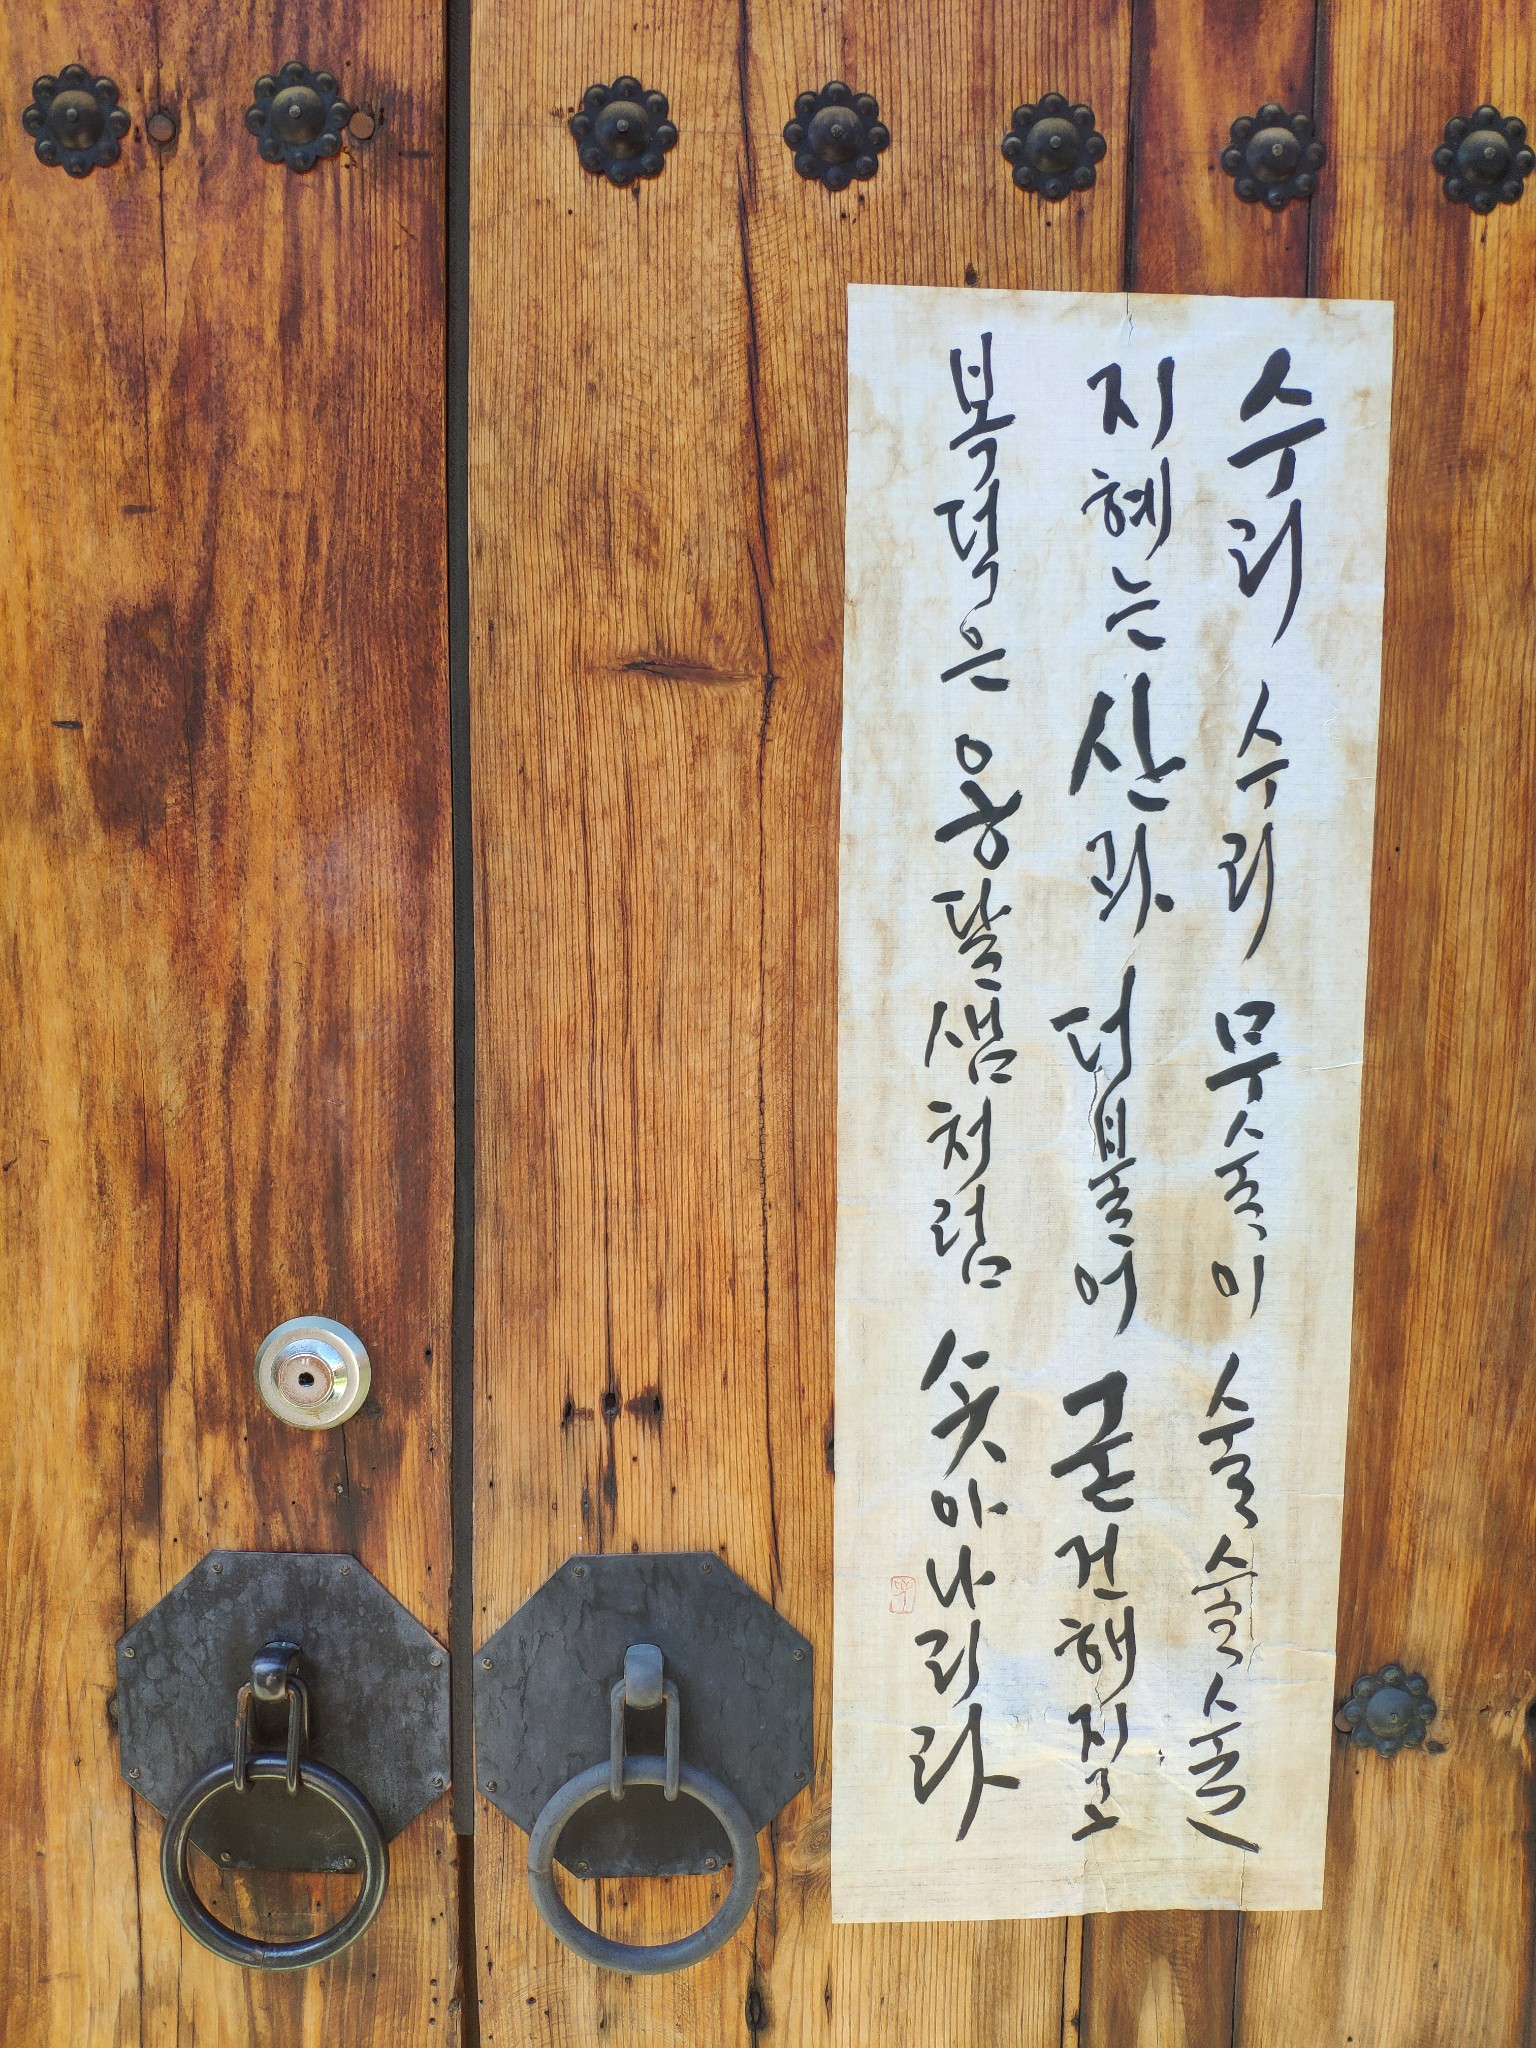 수리 수리 무속이 술술술
지혜는 산과 더불어 굳건해지고
복덕은 옹달샘처럼 솟아나리라